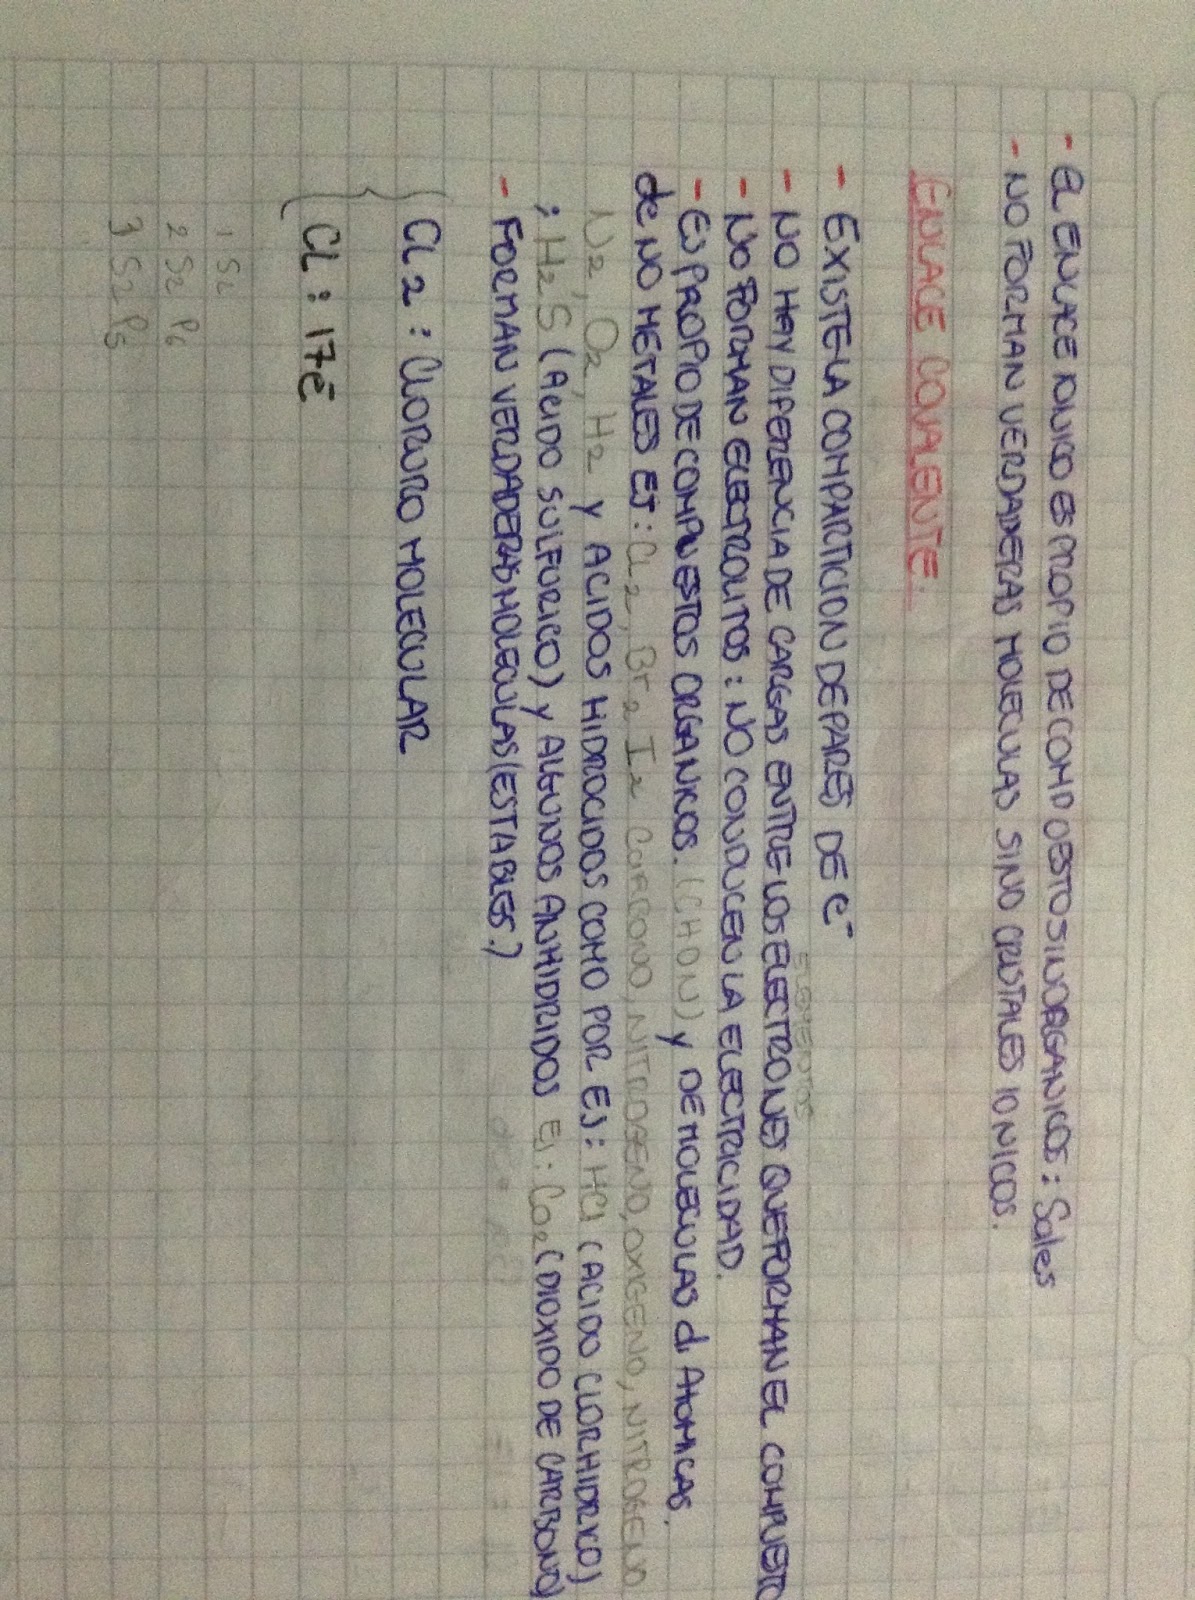 - EL ENLACE IONICO ES PROPIO DE COMPUESTOS INORGANICOS : Sales
- NO FORMAN VERDADERAS MOLECULAS SINO CRISTALES IONICOS.
ENLACE COVALENTE.
- EXISTE LA COMPARTICION DE PARES DE e-
ELEMENTOS
- NO HAY DIFERENCIA DE CARGAS ENTRE LOS ELECTRONES QUE FORMAN EL COMPUESTO
- NO FORMAN ELECTROLITOS : NO CONDUCEN LA ELECTRICIDAD.
- ES PROPIO DE COMPUESTOS ORGANICOS. (CHON) y DE MOLECULAS di Atomicas.
de NO METALES EJ : CL2, Br2 I2 CarCONO, NITROGENO, OXIGENO, NITROGENO
N2, O2, H2 y ACIDOS HIDROCIDOS COMO POR EJ : HCl (ACIDO CLORHIDRICO)
; H2S (ACIDO SULFURICO) y ALGUNOS ANHIDRIDOS EJ : CO2 (DIOXIDO DE CARBONO)
- FORMAN VERDADERAS MOLECULAS (ESTABLES.)
CL2 : CLORURO MOLECULAR
CL : 17ē
1 S2
2 S2 P6
3 S2 P5